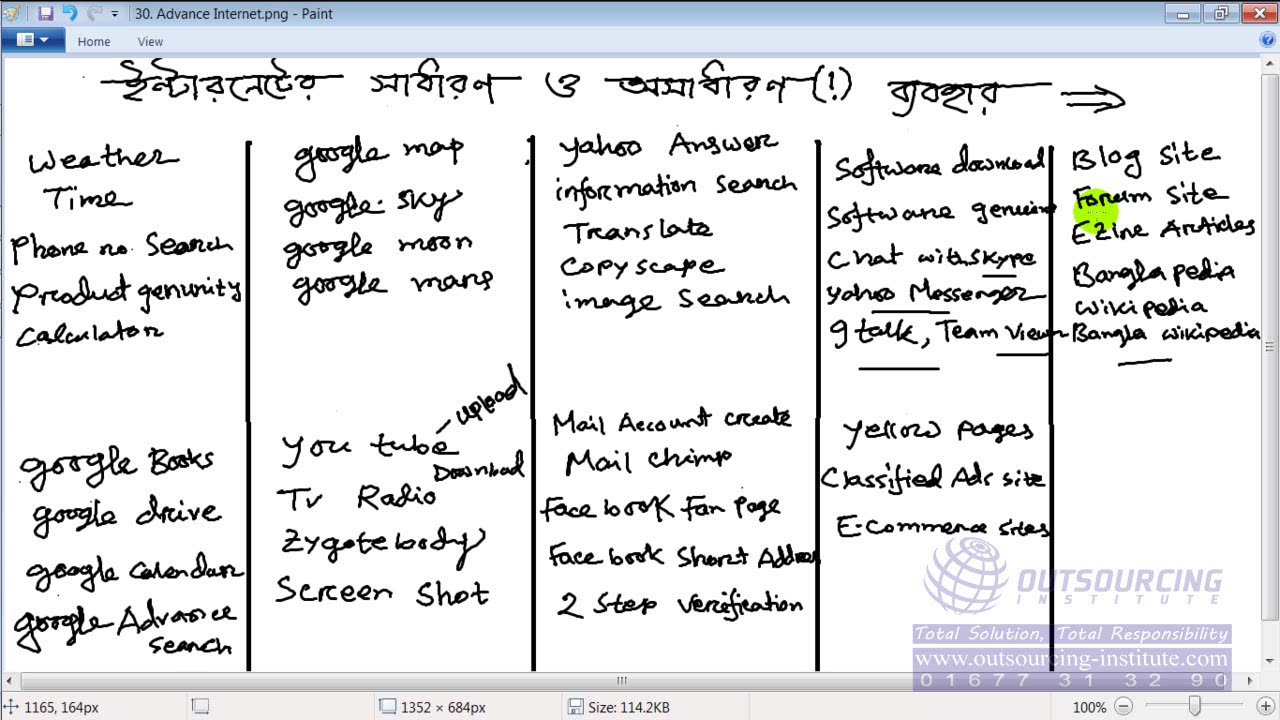 30. Advance Internet.png - Paint
Home View
ইন্টারনেটের সাধারণ ও অসাধারণ (!) ব্যবহার ⇒
Weather
Time
Phone no. Search
Product genunity
Calculator
google map
google sky
google moon
google mars
yahoo Answer
information search
Translate
Copyscape
image search
Software download
Software genuine
Chat with skype
yahoo Messenger
g talk, Team Viewer
Blog site
Forum site
Ezine Articles
Bangla pedia
wikipedia
Bangla wikipedia
google Books
google drive
google calendar
google Advance
search
You tube
upload
Download
Tv Radio
Zygotebody
Screen Shot
Mail Account create
Mail chimp
Face book Fan page
Face book Short Address
2 step verification
Yellow pages
Classified Ads site
E-Commerce sites
OUTSOURCING
INSTITUTE
Total Solution, Total Responsibility
www.outsourcing-institute.com
01677 31 32 90
1165, 164px
1352 × 684px
Size: 114.2KB
100%